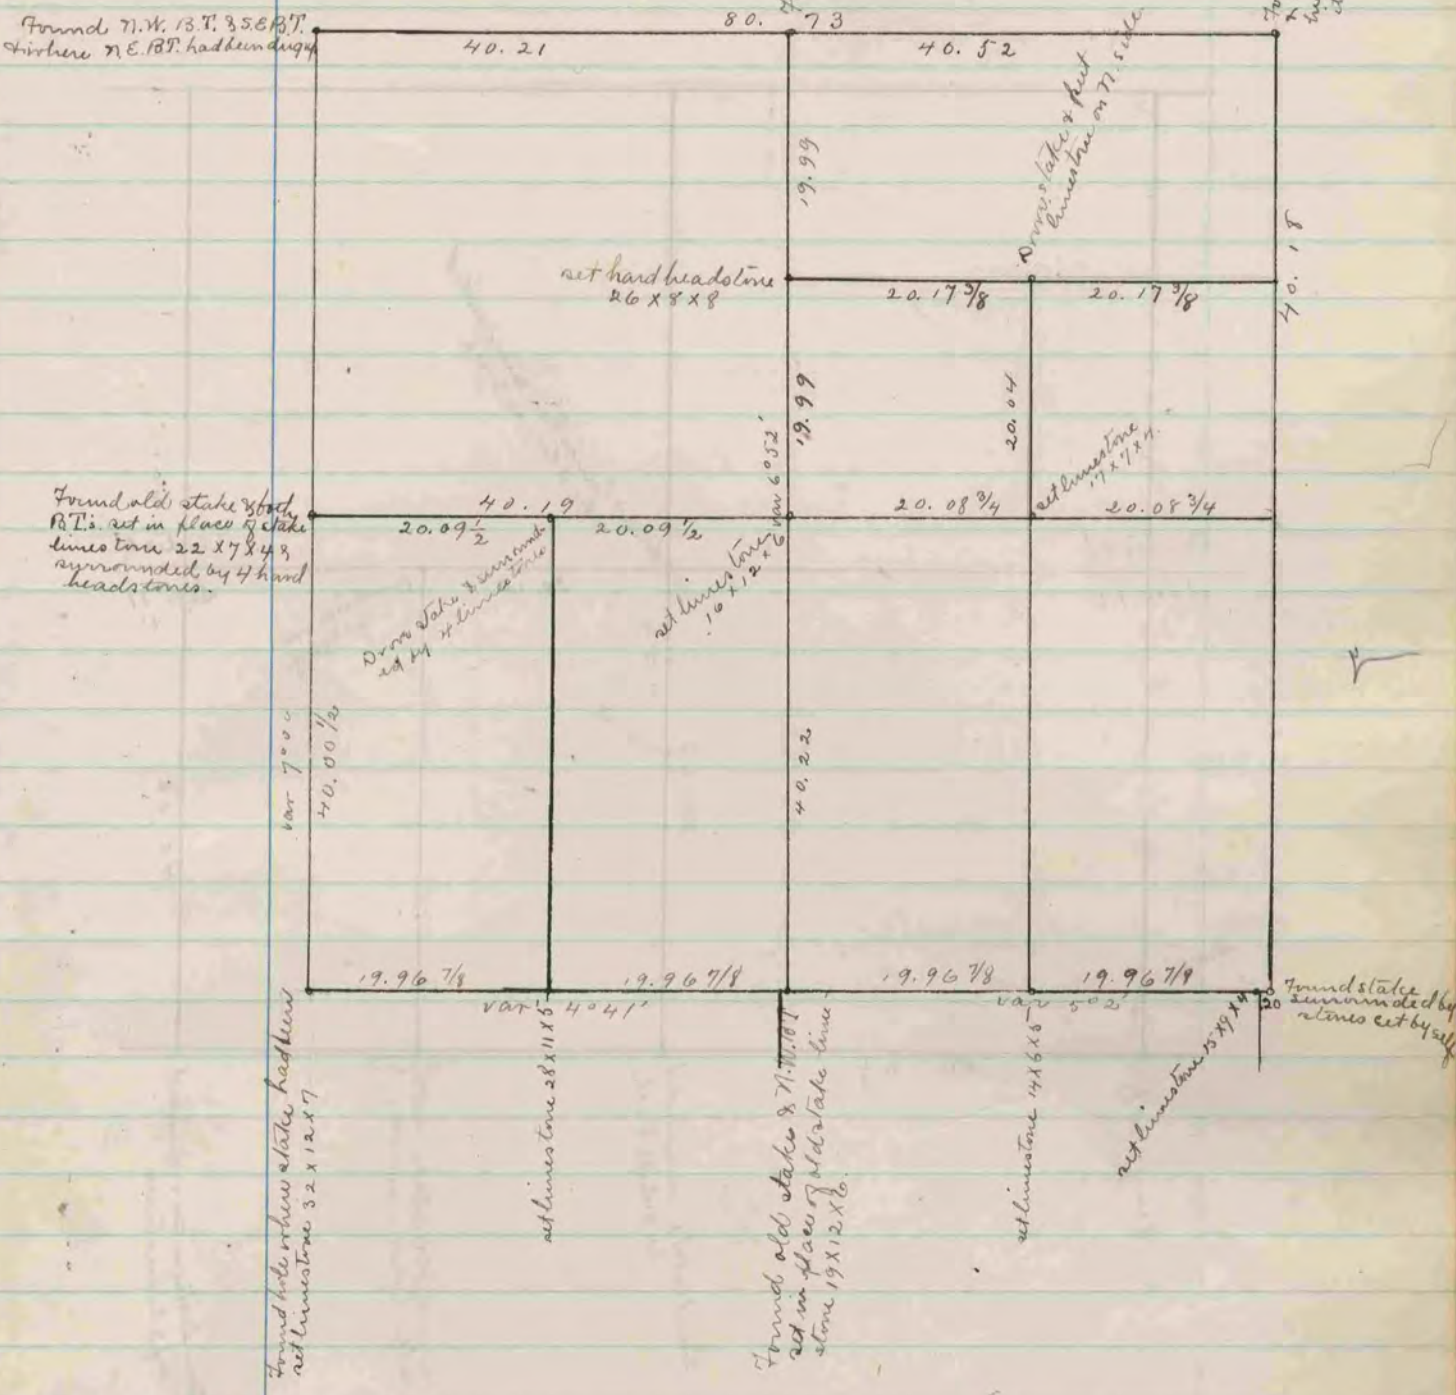 Found N.W. B.T. & S.E B.T.
where N.E. B.T. had been dug up
80. 73
40. 21
40. 52
19.99
Drove stake & put
limestone on N. side.
40. 18
set hard headstone
26 X 8 X 8
20. 17 3/8
20. 17 3/8
19.99
var 6°52'
20.04
set limestone
17 x 7 x 4.
Found old stake & both
B.T.s. set in place of stake
limestone 22 X 7 X 4 &
surrounded by 4 hard
headstones.
40. 19
20.09 1/2
20.09 1/2
20.08 3/4
20.08 3/4
Drove stake & surround
ed by 4 limestones
set limestone
16 x 12 x 6
var 7°00
40.00 1/2
40.22
19.96 7/8
19.96 7/8
19.96 7/8
19.96 7/8
var 4°41'
var 5°02'
20
Found stake
surrounded by
stones set by self
Found hole where stake had been
set limestone 32 x 12 x 7
set limestone 28 x 11 x 5
Found old stake & N.W. BT
set in place of old stake lime
stone 19 X 12 X 6.
set limestone 14 X 6 X 5
set limestone 15 X 9 X 4